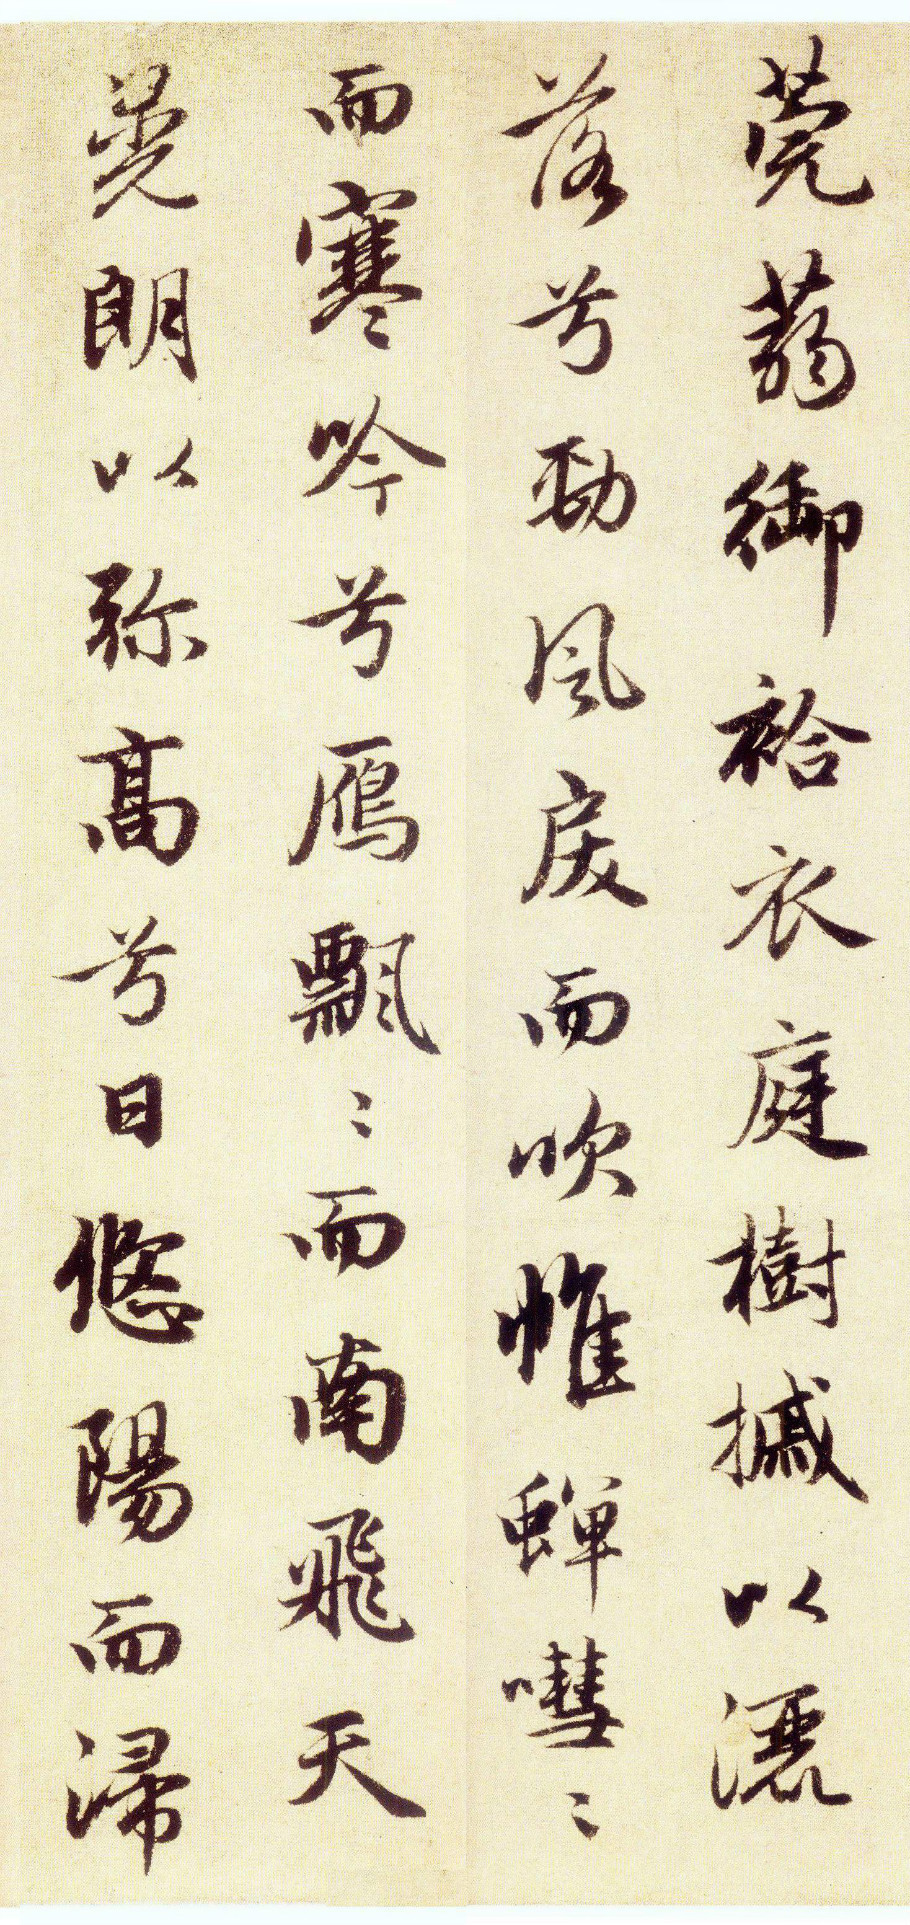 莞蒻御袷衣庭樹摵以灑
落兮勁風戾而吹帷蟬嘒〻
而寒吟兮雁飄〻而南飛天
晃朗以弥高兮日悠陽而